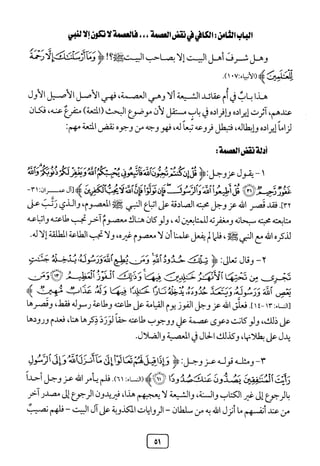 الباب الثامن: الكافي في نقض العصمة ... فالعصمة لا تكون إلا لنبي
وهل شرف أهل البيت إلا بصاحب البيت ﷺ؟! ﴿ وَمَا أَرْسَلْنَاكَ إِلَّا رَحْمَةً
لِّلْعَالَمِينَ ﴾ (الأنبياء:١٠٧).
هذا بابٌ في أُم عقائد الشيعة ألا وهي العصمة، فهي الأصل الأصيل الأول
عندهم، آثرت إيراده وإفراده في بابٍ مستقل لأن موضوع البحث (المتعة) متفرعٌ عنه، فكان
لزاماً إيراده وإبطاله، فتبطل فروعه تبعاً له، فهو وجه من وجوه نقض المتعة مهم:
أدلة نقض العصمة:
١- يقول عز وجل: ﴿ قُلْ إِن كُنتُمْ تُحِبُّونَ اللَّهَ فَاتَّبِعُونِي يُحْبِبْكُمُ اللَّهُ وَيَغْفِرْ لَكُمْ ذُنُوبَكُمْ وَاللَّهُ
غَفُورٌ رَّحِيمٌ ﴿٣١﴾ قُلْ أَطِيعُوا اللَّهَ وَالرَّسُولَ فَإِن تَوَلَّوْا فَإِنَّ اللَّهَ لَا يُحِبُّ الْكَافِرِينَ ﴾ (آل عمران: ٣١-
٣٢). فقد قصر الله عز وجل محبته الصادقة على اتباع النبي ﷺ المعصوم، والذي رتَّبَ على
متابعته محبته سبحانه ومغفرته للمتابعين له، ولو كان هناك معصومٌ آخر تجب طاعته واتباعه
لذكره الله مع النبي ﷺ، فلما لم يفعل علمنا أن لا معصوم غيره، ولا تجب الطاعة المطلقة إلا له.
٢- وقال تعالى: ﴿ تِلْكَ حُدُودُ اللَّهِ وَمَن يُطِعِ اللَّهَ وَرَسُولَهُ يُدْخِلْهُ جَنَّاتٍ
تَجْرِي مِن تَحْتِهَا الْأَنْهَارُ خَالِدِينَ فِيهَا وَذَلِكَ الْفَوْزُ الْعَظِيمُ ﴿١٣﴾ وَمَن
يَعْصِ اللَّهَ وَرَسُولَهُ وَيَتَعَدَّ حُدُودَهُ يُدْخِلْهُ نَارًا خَالِدًا فِيهَا وَلَهُ عَذَابٌ مُّهِينٌ ﴾
(النساء: ١٣-١٤). فعلّق الله عز وجل الفوز يوم القيامة على طاعته وطاعة رسوله فقط، وقصرها
على ذلك، ولو كانت دعوى عصمة علي ووجوب طاعته حقاً لوَرَدَ ذِكرها هنا، فعدم ورودها
يدل على بطلانها، وكذلك الحال في المعصية والضلال.
٣- ومثله قوله عز وجل: ﴿ وَإِذَا قِيلَ لَهُمْ تَعَالَوْا إِلَى مَا أَنزَلَ اللَّهُ وَإِلَى الرَّسُولِ
رَأَيْتَ الْمُنَافِقِينَ يَصُدُّونَ عَنكَ صُدُودًا ﴿٦١﴾ ﴾ (النساء: ٦١). فلم يأمر الله عز وجل أحداً
بالرجوع إلى غير الكتاب والسنة، والشيعة لا يعجبهم هذا، فيريدون الرجوع إلى مصدر آخر
من عند أنفسهم ما أنزل الله به من سلطان - الروايات المكذوبة على آل البيت - فلهم نصيبٌ
٥١